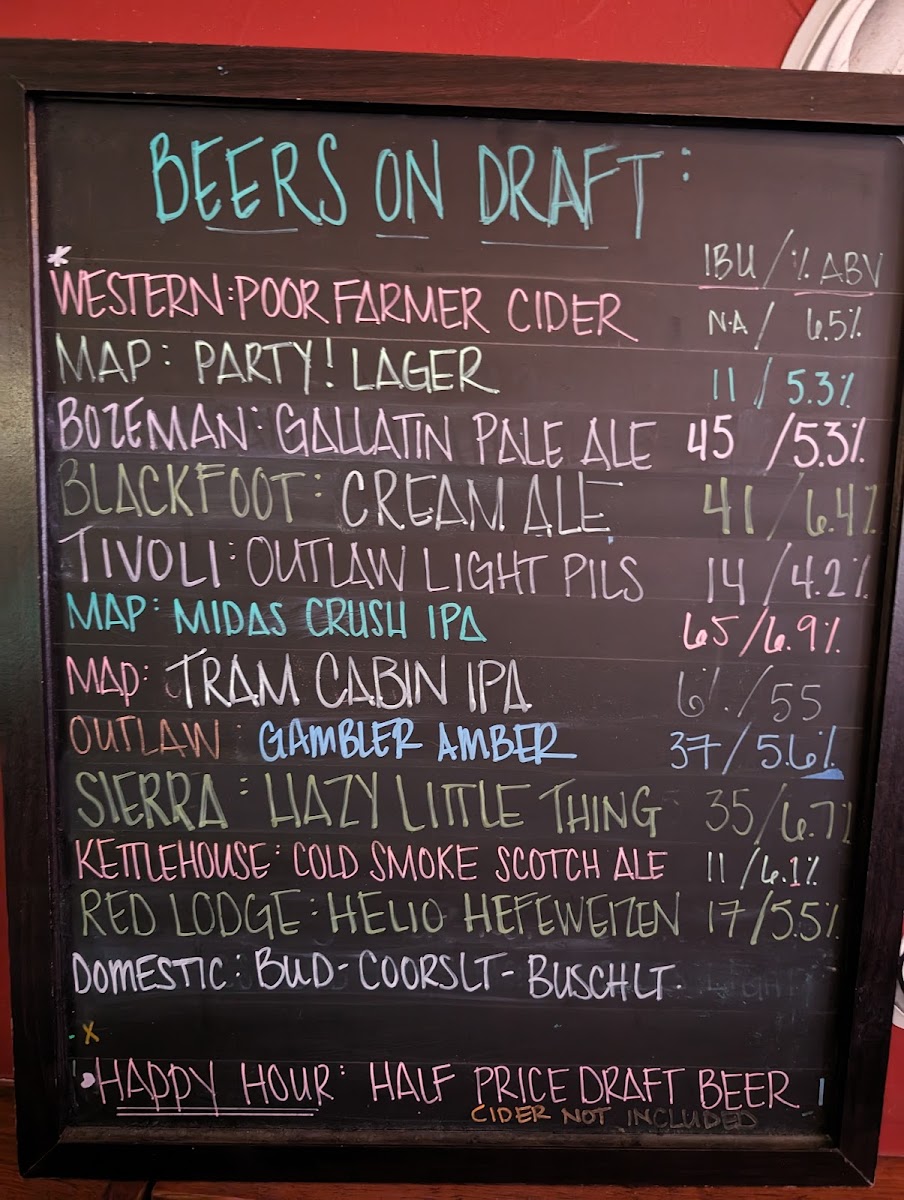 BEERS ON DRAFT:
IBU / % ABV
* WESTERN: POOR FARMER CIDER NA / 6.5%
MAP: PARTY! LAGER 11 / 5.3%
BOZEMAN: GALLATIN PALE ALE 45 / 5.3%
BLACKFOOT: CREAM ALE 41 / 6.4%
TIVOLI: OUTLAW LIGHT PILS 14 / 4.2%
MAP: MIDAS CRUSH IPA 65 / 6.9%
MAP: TRAM CABIN IPA 6% / 55
OUTLAW: GAMBLER AMBER 37 / 5.6%
SIERRA: HAZY LITTLE THING 35 / 6.7%
KETTLEHOUSE: COLD SMOKE SCOTCH ALE 11 / 6.1%
RED LODGE: HELIO HEFEWEIZEN 17 / 5.5%
DOMESTIC: BUD - COORSLT - BUSCHLT
X
HAPPY HOUR: HALF PRICE DRAFT BEER
CIDER NOT INCLUDED